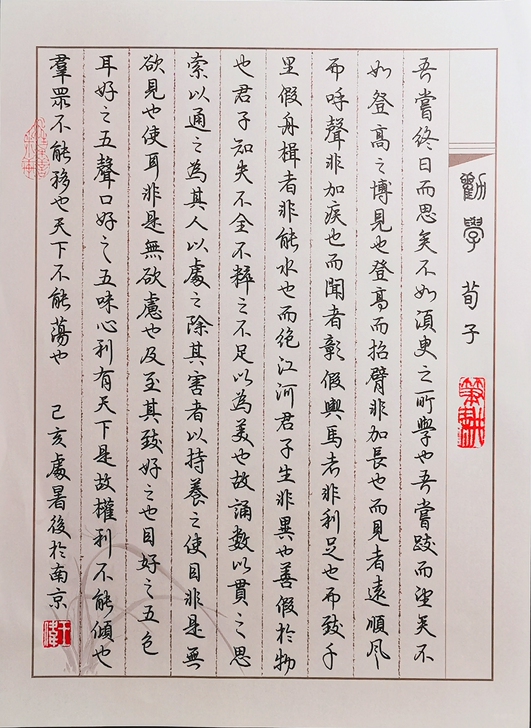 勸學 荀子
吾嘗終日而思矣不如須臾之所學也吾嘗跂而望矣不
如登高之博見也登高而招臂非加長也而見者遠順風
而呼聲非加疾也而聞者彰假輿馬者非利足也而致千
里假舟楫者非能水也而絕江河君子生非異也善假於物
也君子知夫不全不粹之不足以為美也故誦數以貫之思
索以通之為其人以處之除其害者以持養之使目非是無
欲見也使耳非是無欲慮也及至其致好之也目好之五色
耳好之五聲口好之五味心利有天下是故權利不能傾也
羣眾不能移也天下不能蕩也 己亥處暑後於南京
筆耕